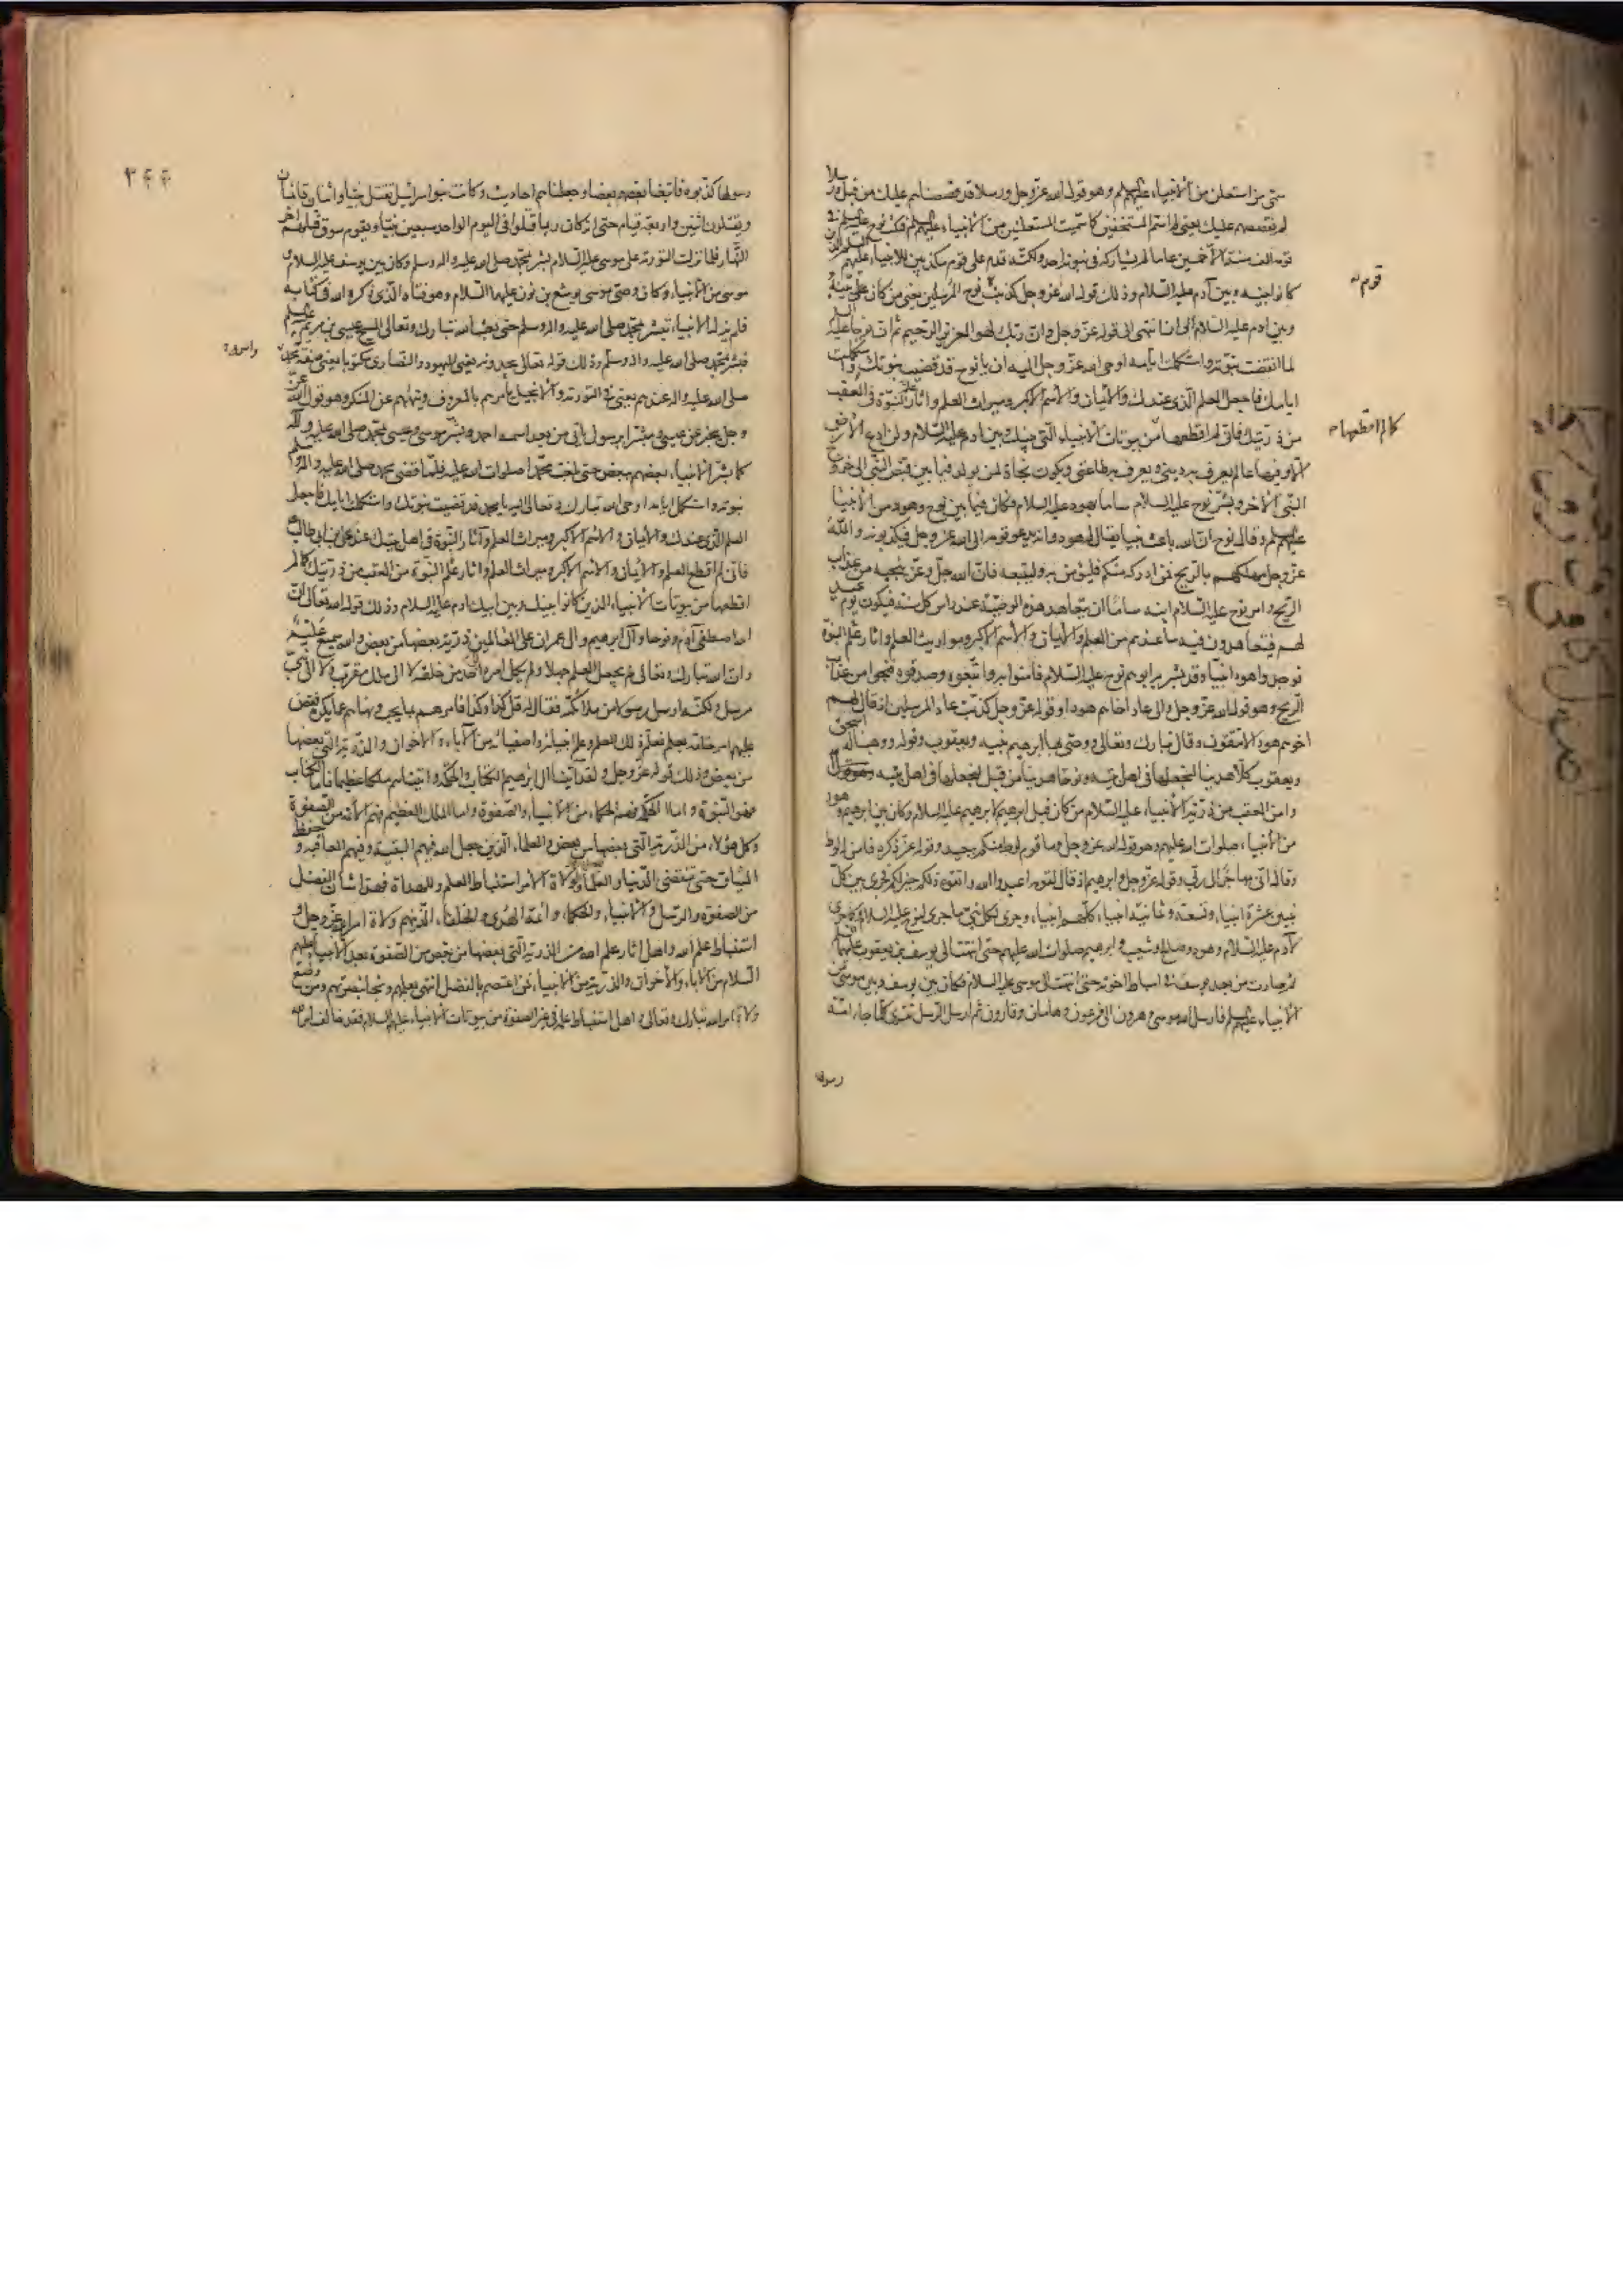 سمّى من استعلن من الأنبياء عليهم السلم وهو قول الله عزّ وجل ورسلا قد قصصناهم عليك من قبل ورسلا
لم نقصصهم عليك يعني لم اسمّ المستخفين كما سمّيت المستعلنين من الأنبياء عليهم السلم فمكث نوح عليه السلم في
قومه الف سنة الّا خمسين عاما لم يشاركه في نبوته احد ولكنّه قدم على قوم مكذبين للأنبياء عليهم السلم الذين
كانوا بينه وبين آدم عليه السّلام وذلك قول الله عزّ وجل كذبت قوم نوح المرسلين يعني من كان بينه
وبين ادم عليه السّلام الى ان انتهى الى قوله عزّ وجل وانّ ربّك لهو العزيز الرّحيم ثم ان نوحا عليه السلم
لما انقضت نبوّته واستكملت ايامه اوحى الله عزّ وجل اليه ان يا نوح قد قضيت نبوّتك واستكملت
ايامك فاجعل العلم الّذي عندك والأيمان والأسم الأكبر وميراث العلم واثار علم النبوّة في العقب
من ذرّيتك فانّي لم اقطعها من بيوتات الأنبياء الّتي بينك وبين ادم عليه السّلام ولن ادع الأرض
الّا وفيها عالم يعرف به ديني ويعرف به طاعتي ويكون نجاة لمن يولد فيما بين قبض النّبي الى خروج
النّبي الأخر وبشّر نوح عليه السّلام ساما بهود عليه السلام فكان فيما بين نوح وهود من الأنبيا
عليهم السلم وقال نوح انّ الله باعث نبيا يقال له هود وانه يدعو قومه الى الله عز وجل فيكذبونه والله
عزّ وجل مهلكهم بالريح فمن ادركه منكم فليؤمن به وليتبعه فانّ الله جلّ وعزّ ينجيه من عذاب
الريح وامر نوح عليه السّلام ابنه ساما ان يتعاهد هذه الوصيّة عند راس كل سنة فيكون يوم عيد
لهم فيتعاهدون فيه ما عندهم من العلم والأيمان والأسم الأكبر ومواريث العلم واثار علم النبوّة
فوجدوا هودا نبيّا وقد بشّر به ابوهم نوح عليه السّلام فامنوا به واتّبعوه وصدّقوه فنجوا من عذاب
الرّيح وهو قول الله عزّ وجل والى عاد اخاهم هودا وقوله عزّ وجل كذبت عاد المرسلين اذ قال لهم
اخوهم هود الا تتقون وقال تبارك وتعالى ووصّى بها ابرهيم بنيه ويعقوب وقوله ووهبنا له اسحق
ويعقوب كلّا هدينا لنجعلها في اهل بيته ونوحا هدينا من قبل لنجعلها في اهل بيته
وامن العقب من ذرّيّة الأنبياء عليه السّلام من كان قبل ابرهيم لابرهيم عليه السلام وكان بين ابرهيم وهود
من الأنبياء صلوات الله عليهم وهو قول الله عز وجل وما قوم لوط منكم ببعيد وقوله عزّ ذكره فامن له لوط
وقال انّي مهاجر الى ربّي وقوله عزّ وجل وابرهيم اذ قال لقومه اعبدوا الله واتقوه ذلكم خير لكم فجرى بين كلّ
نبيين عشرة انبياء وتسعة وثمانية انبياء كلّهم انبياء وجرى لكل نبيّ ما جرى لنوح عليه السّلام وكما جرى
لآدم عليه السّلام وهود وصالح وشعيب وابرهيم صلوات الله عليهم حتى انتهت الى يوسف بن يعقوب عليهما السلم
ثم صارت من بعد يوسف في اسباط اخوته حتى انتهت الى موسى عليه السلام فكان بين يوسف وبين موسى من
الأنبياء عليهم السلم فارسل الله موسى وهرون الى فرعون وهامان وقارون ثم ارسل الرّسل تترى كلّما جاء امّة
رسولها
قومه
كما لم اقطعها
٣٤٤
رسولها كذّبوه فاتبعنا بعضهم بعضا وجعلناهم احاديث وكانت بنو اسرائيل تقتل نبيّا واثنان قائمان
ويقتلون اثنين واربعة قيام حتى انه كان ربما قتلوا في اليوم الواحد سبعين نبيّا ويقوم سوق قتلهم اخر
النّهار فلما نزلت التورية على موسى عليه السّلام بشّر بمحمّد صلى الله عليه واله وسلم وكان بين يوسف عليه السلام و
موسى من الأنبياء وكان وصيّ موسى يوشع بن نون عليهما السّلام وهو فتاه الّذي ذكره الله في كتابه
فلم يزل الأنبياء تبشّر بمحمّد صلى الله عليه واله وسلم حتى بعث الله تبارك وتعالى المسيح عيسى بن مريم
فبشّر بمحمد صلى الله عليه واله وسلّم وذلك قوله تعالى يجدونه يعني اليهود والنصارى مكتوبا يعني صفة محمد
صلى الله عليه واله عندهم يعني في التورية والأنجيل يأمرهم بالمعروف وينهاهم عن المنكر وهو قول الله عزّ
وجل يخبر عن عيسى ومبشّرا برسول يأتي من بعدي اسمه احمد وبشّر موسى وعيسى بمحمّد صلى الله عليه واله
كما بشّر الأنبياء بعضهم ببعض حتى بلغت محمّدا صلوات الله عليه فلمّا قضى محمد صلى الله عليه واله
نبوّته واستكمل ايامه اوحى الله تبارك وتعالى اليه يا محمد قد قضيت نبوّتك واستكملت ايامك فاجعل
العلم الّذي عندك والأيمان والأسم الأكبر وميراث العلم وآثار النبوّة في اهل بيتك عند علي بن ابي طالب
فانّي لم اقطع العلم والأيمان والأسم الأكبر وميراث العلم واثار علم النبوّة من العقب من ذرّيتك كما لم
اقطعها من بيوتات الأنبياء الذين كانوا بينك وبين ابيك ادم عليه السلام وذلك قول الله تعالى انّ
الله اصطفى آدم ونوحا وآل ابرهيم وال عمران على العالمين ذرّية بعضها من بعض والله سميع عليم
وانّ الله تبارك وتعالى لم يجعل العلم جهلا ولم يكل امره الى احد من خلقه لا الى ملك مقرّب ولا الى نبيّ
مرسل ولكنّه ارسل رسولا من ملائكته فقال له قل كذا وكذا فامرهم بما يحب ونهاهم عمّا يكره فقصّ
عليهم امر خلقه بعلم فعلّم ذلك العلم وعلّم انبيائه واصفيائه من الأباء والأخوان والذرّية التي بعضها
من بعض وذلك قوله عزّ وجل ولقد آتينا ال ابرهيم الكتاب والحكمة واتيناهم ملكا عظيما فاما الكتاب
فهو النّبوّة واما الحكمة فهم الحكماء من الأنبياء والصّفوة واما الملك العظيم فهم الأئمة من الصّفوة
وكل هؤلاء من الذّرّية الّتي بعضها من بعض والعلماء الّذين جعل الله فيهم البقيّة وفيهم العاقبة وحفظ
الميثاق حتى تنقضي الدّنيا والعلماء ولولاة الأمر استنباط العلم وللهداة فهذا شان الفضل
من الصفوة والرّسل والأنبياء والحكماء وائمّة الهدى والخلفاء الّذين هم ولاة امر الله عزّ وجل و
استنباط علم الله واهل اثار علم الله من الذّرية الّتي بعضها من بعض من الصّفوة بعد الأنبياء عليهم
السّلام من الأباء والأخوان والذّرية من الأنبياء فمن اعتصم بالفضل انتهى بعلمهم ونجا بنصرتهم ومن وضع
ولاة امر الله تبارك وتعالى واهل استنباط علمه في غير الصفوة من بيوتات الأنبياء عليهم السلام فقد خالف امر الله